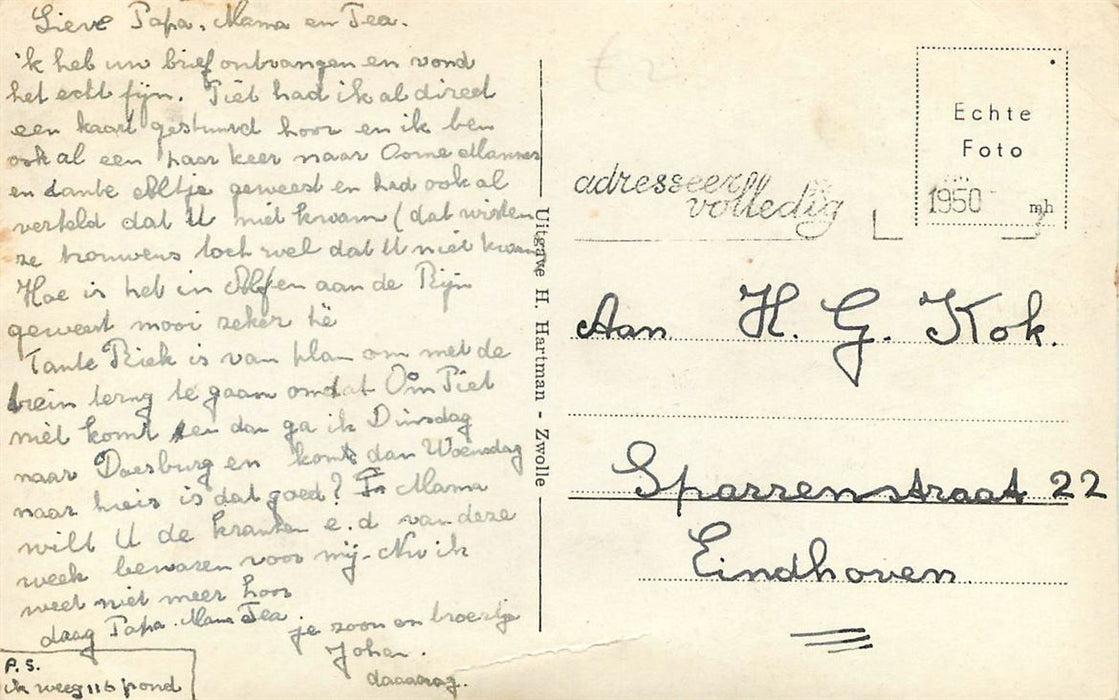 Lieve Papa, Mama en Tea.
ik heb uw brief ontvangen en vond
het echt fijn. Piet had ik al direct
een kaart gestuurd hoor en ik ben
ook al een paar keer naar Oome Mannes
en tante Altje geweest en had ook al
verteld dat U niet kwam (dat wisten
ze trouwens toch wel dat U niet kwam
Hoe is het in Alfen aan de Rijn
geweest mooi zeker hè
Tante Riek is van plan om met de
trein terug te gaan omdat Oom Piet
niet komt en dan ga ik Dinsdag
naar Doesburg en kom dan Woensdag
naar huis is dat goed? En Mama
wilt U de kranten e.d van deze
week bewaren voor mij. Nu ik
weet niet meer hoor
daag Papa Mama Tea
je zoon en broertje
Johan.
daaaaag.
P.S.
ik weeg 116 pond
Uitgave H. Hartman - Zwolle
€ 2
Echte
Foto
adresseer
volledig
1950
Aan H. G. Kok.
Sparrenstraat 22
Eindhoven